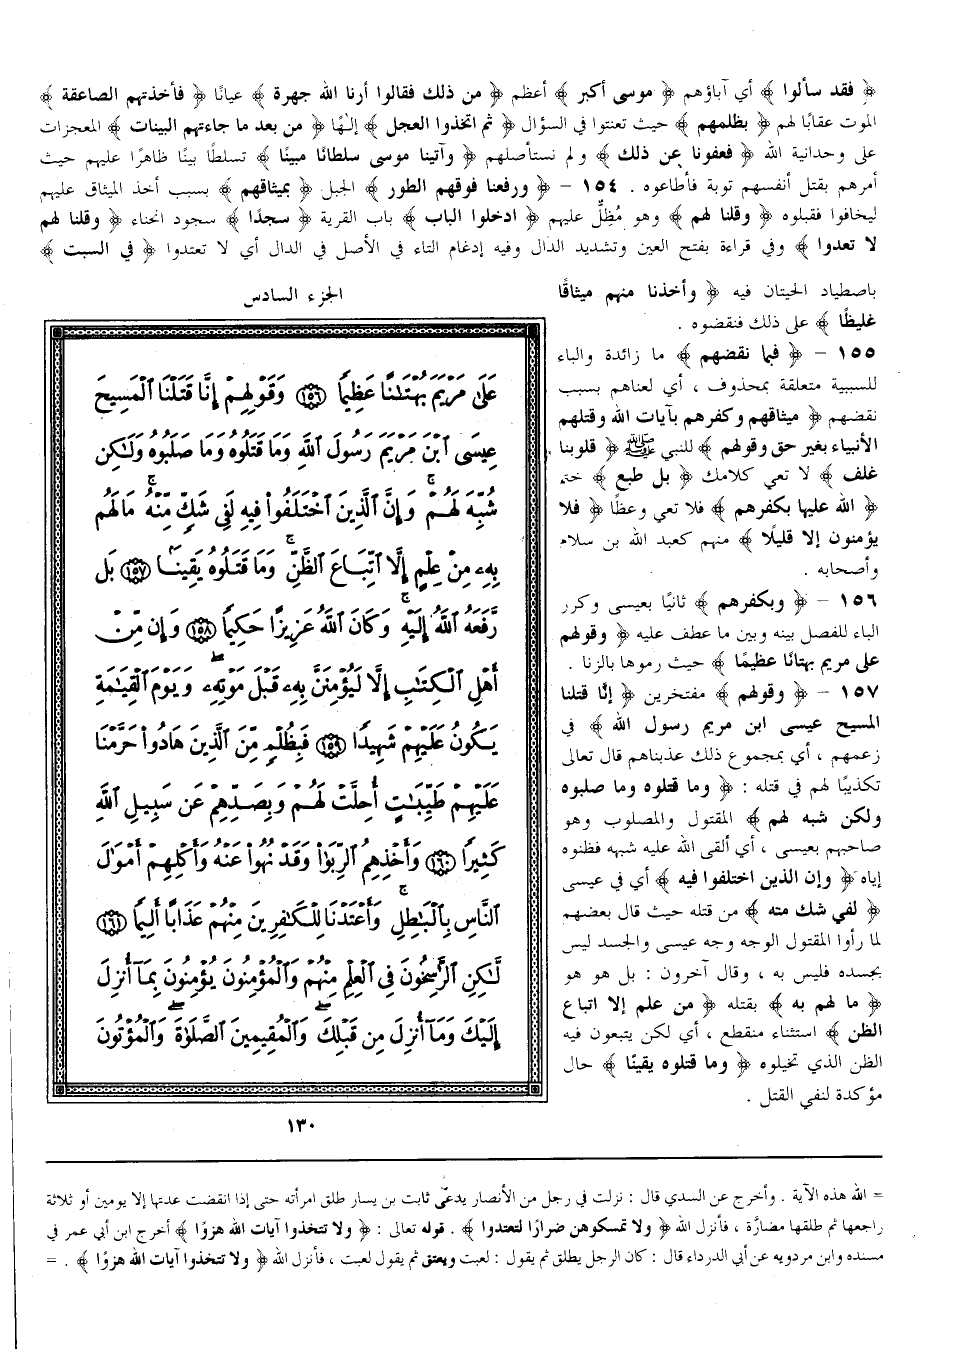 ﴿ فقد سألوا ﴾ أي آباؤهم ﴿ موسى أكبر ﴾ أعظم ﴿ من ذلك فقالوا أرنا الله جهرة ﴾ عيانًا ﴿ فأخذتهم الصاعقة ﴾
الموت عقابًا لهم ﴿ بظلمهم ﴾ حيث تعنتوا في السؤال ﴿ ثم اتخذوا العجل ﴾ إلهًا ﴿ من بعد ما جاءتهم البينات ﴾ المعجزات
على وحدانية الله ﴿ فعفونا عن ذلك ﴾ ولم نستأصلهم ﴿ وآتينا موسى سلطانًا مبينًا ﴾ تسلطًا بينًا ظاهرًا عليهم حيث
أمرهم بقتل أنفسهم توبة فأطاعوه . ١٥٤ - ﴿ ورفعنا فوقهم الطور ﴾ الجبل ﴿ بميثاقهم ﴾ بسبب أخذ الميثاق عليهم
ليخافوا فقبلوه ﴿ وقلنا لهم ﴾ وهو مُظِلٌّ عليهم ﴿ ادخلوا الباب ﴾ باب القرية ﴿ سجدًا ﴾ سجود انحناء ﴿ وقلنا لهم
لا تعدوا ﴾ وفي قراءة بفتح العين وتشديد الدال وفيه إدغام التاء في الأصل في الدال أي لا تعتدوا ﴿ في السبت ﴾
باصطياد الحيتان فيه ﴿ وأخذنا منهم ميثاقًا
غليظًا ﴾ على ذلك فنقضوه .
١٥٥ - ﴿ فبما نقضهم ﴾ ما زائدة والباء
للسببية متعلقة بمحذوف ، أي لعناهم بسبب
نقضهم ﴿ ميثاقهم وكفرهم بآيات الله وقتلهم
الأنبياء بغير حق وقولهم ﴾ للنبي ﷺ ﴿ قلوبنا
غلف ﴾ لا تعي كلامك ﴿ بل طبع ﴾ ختم
﴿ الله عليها بكفرهم ﴾ فلا تعي وعظًا ﴿ فلا
يؤمنون إلا قليلًا ﴾ منهم كعبد الله بن سلام
وأصحابه .
١٥٦ - ﴿ وبكفرهم ﴾ ثانيًا بعيسى وكرر
الباء للفصل بينه وبين ما عطف عليه ﴿ وقولهم
على مريم بهتانًا عظيمًا ﴾ حيث رموها بالزنا .
١٥٧ - ﴿ وقولهم ﴾ مفتخرين ﴿ إنَّا قتلنا
المسيح عيسى ابن مريم رسول الله ﴾ في
زعمهم ، أي بمجموع ذلك عذبناهم قال تعالى
تكذيبًا لهم في قتله : ﴿ وما قتلوه وما صلبوه
ولكن شبه لهم ﴾ المقتول والمصلوب وهو
صاحبهم بعيسى ، أي ألقى الله عليه شبهه فظنوه
إياه ﴿ وإن الذين اختلفوا فيه ﴾ أي في عيسى
﴿ لفي شك منه ﴾ من قتله حيث قال بعضهم
لما رأوا المقتول الوجه وجه عيسى والجسد ليس
بجسده فليس به ، وقال آخرون : بل هو هو
﴿ ما لهم به ﴾ بقتله ﴿ من علم إلا اتباع
الظن ﴾ استثناء منقطع ، أي لكن يتبعون فيه
الظن الذي تخيلوه ﴿ وما قتلوه يقينًا ﴾ حال
مؤكدة لنفي القتل .
الجزء السادس
عَلَىٰ مَرْيَمَ بُهْتَٰنًا عَظِيمًا ١٥٦ وَقَوْلِهِمْ إِنَّا قَتَلْنَا ٱلْمَسِيحَ
عِيسَى ٱبْنَ مَرْيَمَ رَسُولَ ٱللَّهِ وَمَا قَتَلُوهُ وَمَا صَلَبُوهُ وَلَٰكِن
شُبِّهَ لَهُمْ ۚ وَإِنَّ ٱلَّذِينَ ٱخْتَلَفُوا۟ فِيهِ لَفِى شَكٍّ مِّنْهُ ۚ مَا لَهُم
بِهِۦ مِنْ عِلْمٍ إِلَّا ٱتِّبَاعَ ٱلظَّنِّ ۚ وَمَا قَتَلُوهُ يَقِينًۢا ١٥٧ بَل
رَّفَعَهُ ٱللَّهُ إِلَيْهِ ۚ وَكَانَ ٱللَّهُ عَزِيزًا حَكِيمًا ١٥٨ وَإِن مِّنْ
أَهْلِ ٱلْكِتَٰبِ إِلَّا لَيُؤْمِنَنَّ بِهِۦ قَبْلَ مَوْتِهِۦ ۖ وَيَوْمَ ٱلْقِيَٰمَةِ
يَكُونُ عَلَيْهِمْ شَهِيدًا ١٥٩ فَبِظُلْمٍ مِّنَ ٱلَّذِينَ هَادُوا۟ حَرَّمْنَا
عَلَيْهِمْ طَيِّبَٰتٍ أُحِلَّتْ لَهُمْ وَبِصَدِّهِمْ عَن سَبِيلِ ٱللَّهِ
كَثِيرًا ١٦٠ وَأَخْذِهِمُ ٱلرِّبَوٰا۟ وَقَدْ نُهُوا۟ عَنْهُ وَأَكْلِهِمْ أَمْوَٰلَ
ٱلنَّاسِ بِٱلْبَٰطِلِ ۚ وَأَعْتَدْنَا لِلْكَٰفِرِينَ مِنْهُمْ عَذَابًا أَلِيمًا ١٦١
لَّٰكِنِ ٱلرَّٰسِخُونَ فِى ٱلْعِلْمِ مِنْهُمْ وَٱلْمُؤْمِنُونَ يُؤْمِنُونَ بِمَآ أُنزِلَ
إِلَيْكَ وَمَآ أُنزِلَ مِن قَبْلِكَ ۖ وَٱلْمُقِيمِينَ ٱلصَّلَوٰةَ ۖ وَٱلْمُؤْتُونَ
١٣٠
= الله هذه الآية . وأخرج عن السدي قال : نزلت في رجل من الأنصار يدعىٰ ثابت بن يسار طلق امرأته حتى إذا انقضت عدتها إلا يومين أو ثلاثة
راجعها ثم طلقها مضارَّة ، فأنزل الله ﴿ ولا تمسكوهن ضرارًا لتعتدوا ﴾ . قوله تعالى : ﴿ ولا تتخذوا آيات الله هزوًا ﴾ أخرج ابن أبي عمر في
مسنده وابن مردويه عن أبي الدرداء قال : كان الرجل يطلق ثم يقول : لعبت ويعتق ثم يقول لعبت ، فأنزل الله ﴿ ولا تتخذوا آيات الله هزوًا ﴾ . =